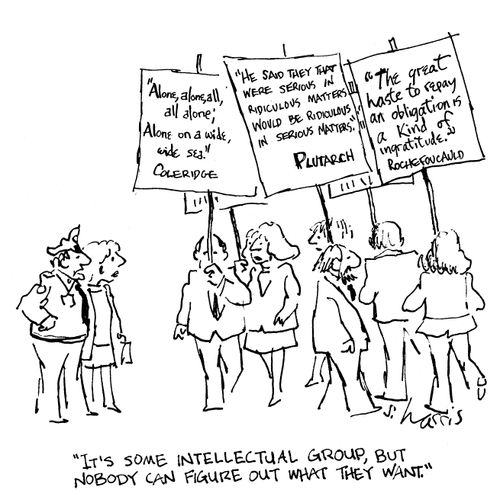 "Alone, alone, all,
all alone;
Alone on a wide,
wide sea."
COLERIDGE
"HE SAID THEY THAT
WERE SERIOUS IN
RIDICULOUS MATTERS
WOULD BE RIDICULOUS
IN SERIOUS MATTERS."
PLUTARCH
"The great
haste to repay
an obligation is
a kind of
ingratitude."
ROCHEFOUCAULD
S. Harris
"IT'S SOME INTELLECTUAL GROUP, BUT
NOBODY CAN FIGURE OUT WHAT THEY WANT."